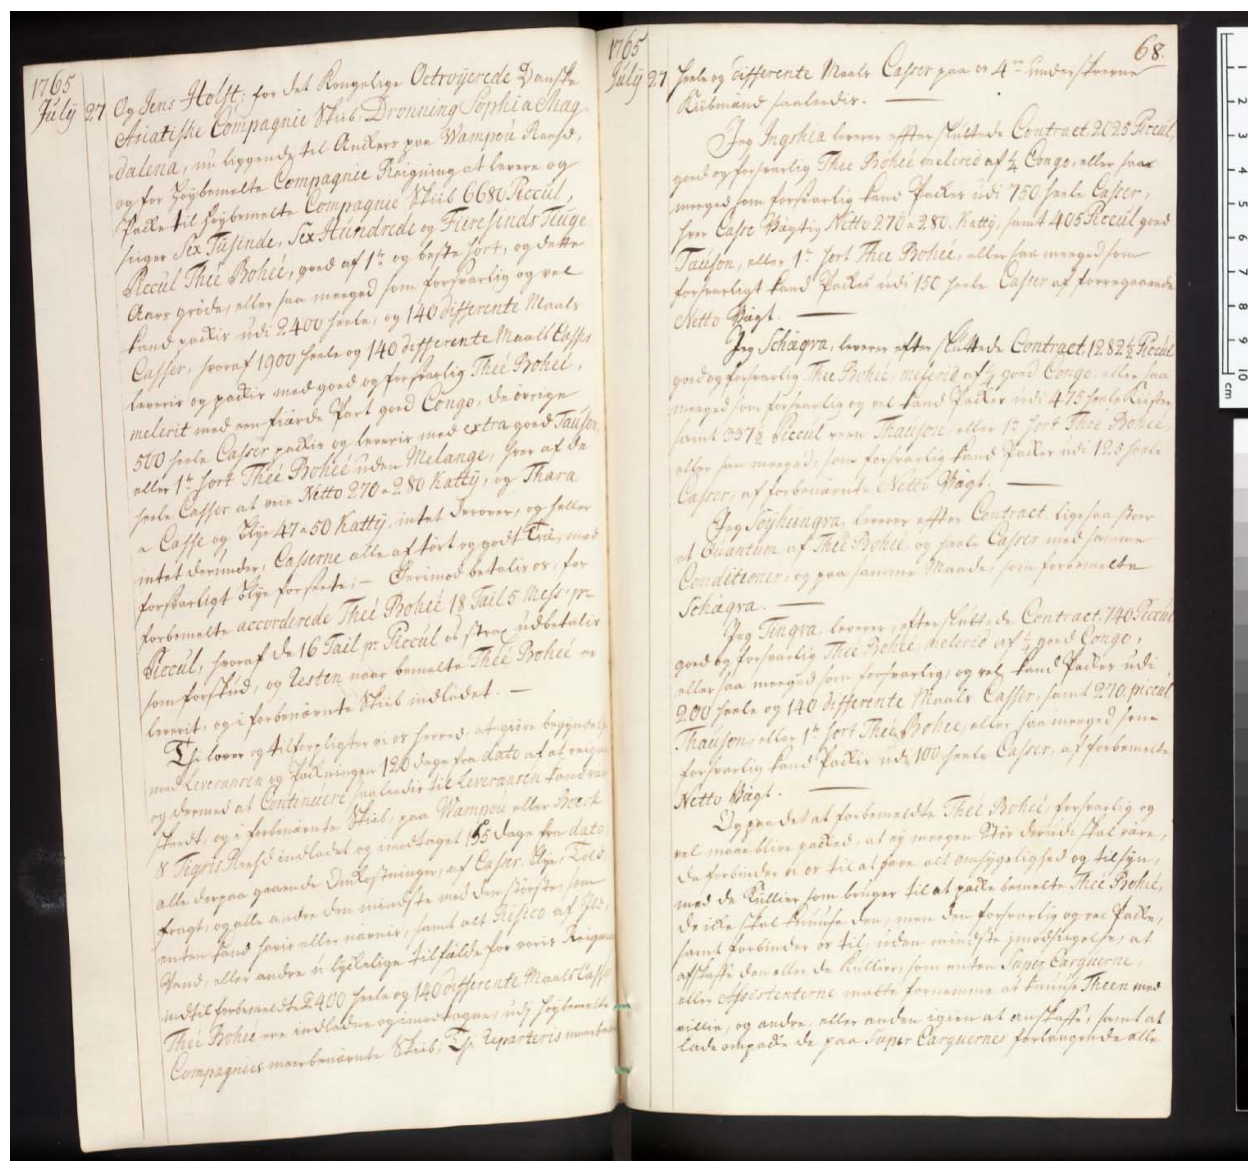 1765
July 27 Og Jens Holst; for det Kongelige Octroÿerede Danske
Asiatiske Compagnie Skib, Dronning Sophia Mag-
dalena, nu liggende til Anckers paa Wampou Reesd,
og for Høÿbemelte Compagnie Reigning at levere og
Packe til Høÿbemelte Compagnie Skib 6680 Piccul,
siiger Sex Tusinde, Sex Hundrede og Fiiresinds Tiuge
Piccul Theé Boheé, goed af 1te og beste sort, og dette
Aars grøde, eller saa meeget som forsvarlig og vel
kand packis udi 2400 heele, og 140 differente Maals
Casser, hvoraf 1900 heele og 140 differente Maals Casser
leveris og packis med goed og forsvarlig Theé Boheé,
melerit med een fiærde Part goed Congo, de øvrige
500 heele Casser packis og leveris med extra goed Tauson,
eller 1te sort Theé Boheé uden Melange, hver af de
heele Casser at veie Netto 270 a 280 Kattÿ, og Thara
a Casse og Blye 47 a 50 Kattÿ, intet derover, og heller
intet derunder, Casserne alle af tørt og godt Træ, med
forsvarligt Blye forseete; — Derimod betalis os, for
forbemelte accorderede Theé Boheé 18 Tail 5 Mess pr
Piccul, hvoraf de 16 Tail pr. Piccul os strax udbetalis
som forskud, og Resten naar bemelte Theé Boheé er
leverit, og i forbenævnte Skiib indladet. —
Thi lover og tilforpligter vi os herved at giøre begyndelse
med Leverancen og Packningen 120 dage fra dato af at reigne
og dermed at Continuere saaledis til Leverancen kand være
skeedt, og i forbenævnte Skiib, paa Wampou eller Bocck
& Tigris Reesd indladet og imodtaget 155 dage fra dato
alle derpaa gaaende Omkostninger, af Casser, Blye, Told,
fragt, og alle andre den mindste med den største, som
enten kand havis eller nævnis, samt alt Risico af Ild,
Vand, eller andre ulyckelige tilfælde for voris Reigning
indtil forbemeldte 2400 heele og 140 differente Maals Casser
Theé Boheé ere indladne og imodtagne, udj Høÿbemelte
Compagnies meerbenævnte Skiib, Thi Reparteris meerbem
1765
July 27 heele og differente Maals Casser paa os 4re underskrevne
68.
Kiøbmænd saaledis. —
Jeg Ingshia leverer efter sluttede Contract 2025 Piccul,
goed og forsvarlig Theé Boheé melerid af ¼ Congo, eller saa
meeget som forsvarlig kand Packes udi 750 heele Casser,
hver Casse Vægtig Netto 270 a 280 Kattÿ, samt 405 Piccul goed
Tauson, eller 1te sort Theé Boheé, eller saa meeget som
forsvarligt kand Packes udi 150 heele Casser af forregaaende
Netto Vægt. —
Jeg Schagra, leverer efter sluttede Contract 1282½ Piccul
goed og forsvarlig Theé Boheé, melerid af ¼ goed Congo, eller saa
meeget som forsvarlig og vel kand Packes udi 475 heele Kister
samt 337½ Piccul reen Thauson eller 1te sort Theé Boheé,
eller saa meeget, som forsvarlig kand Packes udi 125 heele
Casser, af forbenævnte Netto Vægt. —
Jeg Soÿhungra, leverer efter Contract ligesaa stor
et Quantum af Theé Boheé, og heele Casser med samme
Conditioner, og paa samme Maade, som forbemelte
Schagra. —
Jeg Tingra, leverer, efter sluttede Contract, 740 Piccul
goed og forsvarlig Theé Boheé, melerid af ¼ goed Congo,
eller saa meeget som forsvarlig, og vel kand Packes udi
200 heele og 140 differente Maals Casser, samt 270 piccul
Thauson, eller 1te sort Theé Boheé, eller saa meeget som
forsvarlig kand Packis udi 100 heele Casser, af forbemelte
Netto Vægt. —
Og paa det at forbemeldte Theé Boheé, forsvarlig og
vel maae blive packed, at eÿ megen Stöv derudi skal være,
da forbinder vi os til at have all omhyggelighed og tilsÿn,
med de Kullier som bruges til at packe bemelte Theé Boheé,
de icke skal knuuse den, men den forsvarlig og vel Packe,
samt forbinder os til, uden mindste imodsigelse, at
afskaffe den eller de Kullier, som enten Super Carguerne,
eller Assistenterne maatte fornemme at knuuse Theen med
villie, og andre, eller anden igien at anskaffe, samt at
lade ompacke de paa Super Carguernes forlangende alle